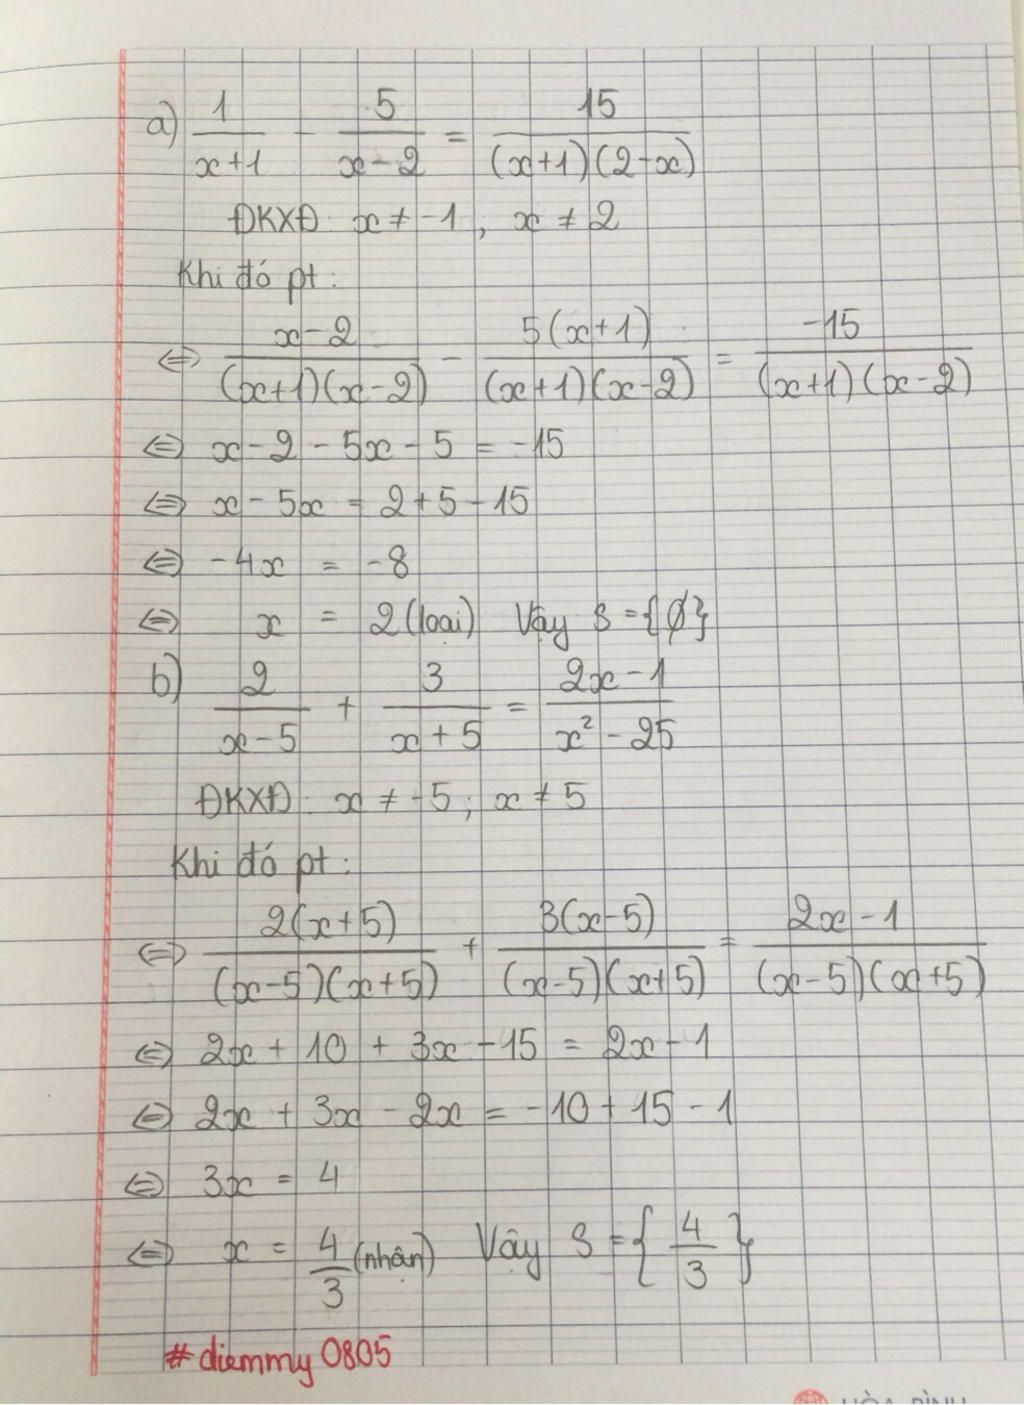 a) 1/(x+1) - 5/(x-2) = 15/((x+1)(2-x))
ĐKXĐ: x ≠ -1, x ≠ 2
Khi đó pt:
⇔ (x-2)/((x+1)(x-2)) - 5(x+1)/((x+1)(x-2)) = -15/((x+1)(x-2))
⇔ x-2-5x-5 = -15
⇔ x-5x = 2+5-15
⇔ -4x = -8
⇔ x = 2 (loại) Vậy S = {Ø}
b) 2/(x-5) + 3/(x+5) = (2x-1)/(x²-25)
ĐKXĐ: x ≠ -5; x ≠ 5
Khi đó pt:
⇔ 2(x+5)/((x-5)(x+5)) + 3(x-5)/((x-5)(x+5)) = (2x-1)/((x-5)(x+5))
⇔ 2x+10+3x-15 = 2x-1
⇔ 2x+3x-2x = -10+15-1
⇔ 3x = 4
⇔ x = 4/3 (nhận) Vậy S = {4/3}
#diemmy0805
HÒA BÌNH